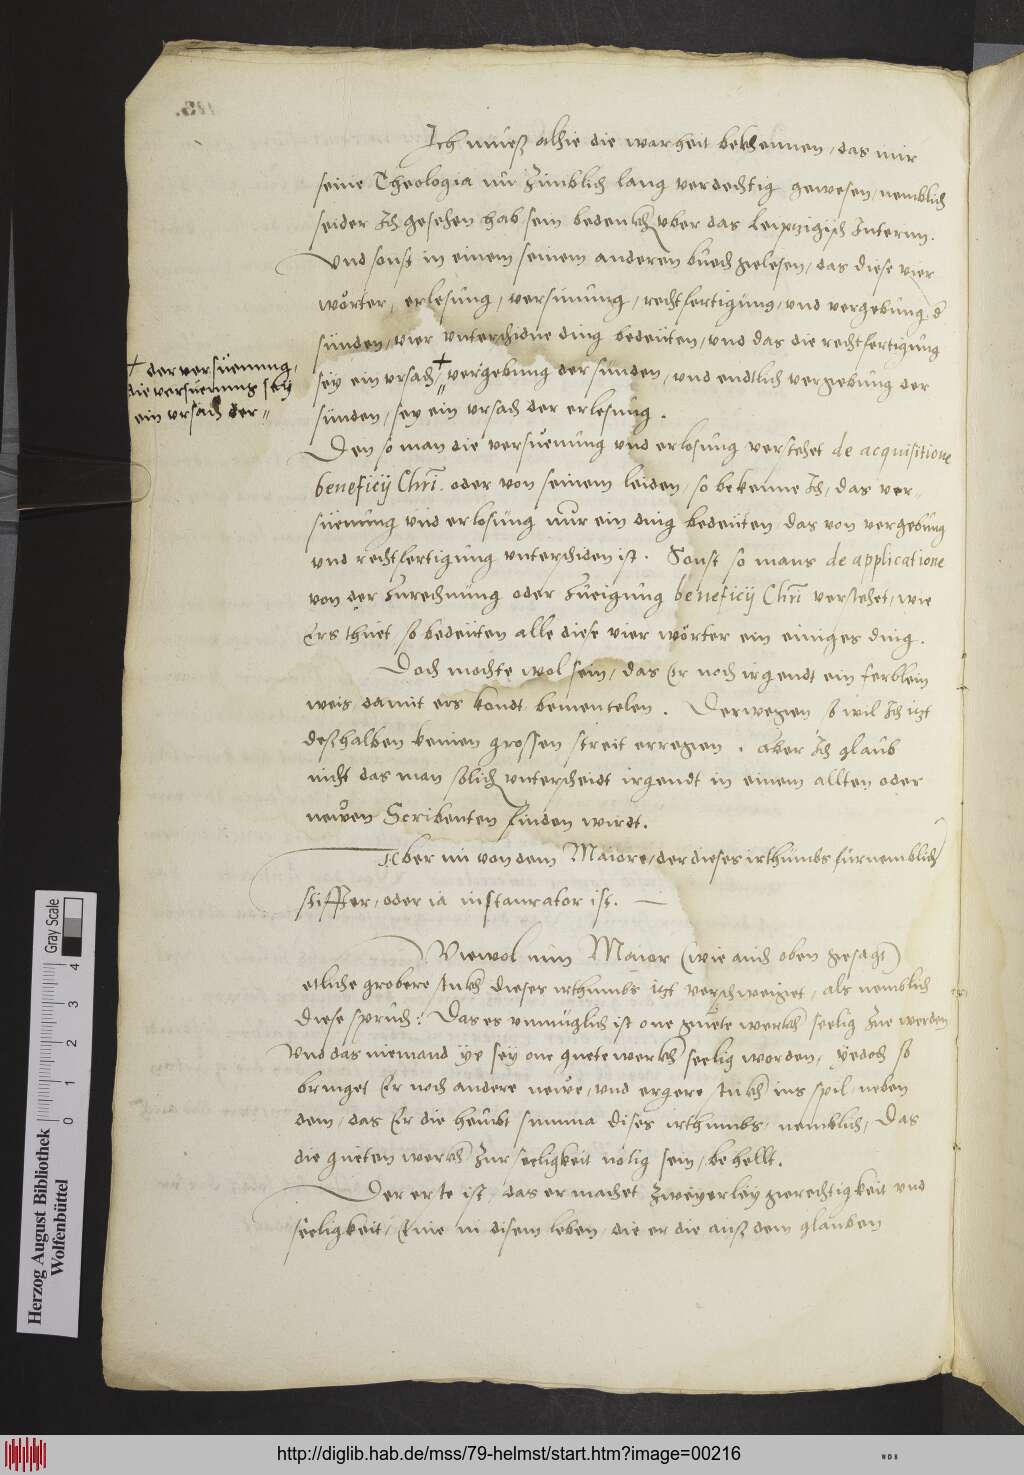 Ich mueß alhie die warheit bekhennen, das mir
seine Theologia nu zimblich lang verdechtig gewesen, nemblich
seider Ich gesehen hab sein bedenkh vber das Leipzigisch Interim.
Vnd sonst in einem seinem anderen buech gelesen, das diese vier
wörter, erlesung, versünung, rechtfertigung, vnd vergebung d
sünden, vier vnterschidne ding bedeüten, vnd das die rechtfertigung
sey ein vrsach + vergebung der sünden, vnd endtlich vergebung der
sünden, sey ein vrsach der erlesung.
+ der versüenung,
die versüenung sey
ein vrsach der
Den so man die versüenung vnd erlosung verstehet de acquisitione
beneficij Chri. oder von seinem leiden, so bekenne Ich, das ver-
süenung vnd erlosung nur ein ding bedeüten das von vergebung
vnd rechtfertigung vnterschiden ist. Sonst so mans de applicatione
von der Zurechnung oder Zueigung beneficij Chri verstehet, wie
Ers thuet, so bedeüten alle diese vier wörter ein einiges ding.
Doch mochte wol sein, das Er noch irgendt ein ferblein
weis, damit ers kondt bementelen. Derwegen so wil Ich itzt
deßhalben keinen grossen streit erregen. Aber Ich glaub
nicht das man solich vnterscheidt irgendt in einem allten oder
newen Scribenten finden wirdt.
Aber nu von dem Maiore, der dieses irthumbs fürnemblich
stiffter, oder ia instaurator ist.
Wiewol nun Maior (wie auch oben gesagt)
etliche grobere stukh dieses irthumbs itzt verschweiget, als nemblich
diese spruch: Das es vnmüglich ist one guete werkh seelig zue werden
Vnd das niemand ye sey one guete werkh seelig worden, yedoch so
bringet Er noch andere newe, vnd ergere stukh ins spil, neben
dem, das Er die heubt summa dises irthumbs, nemblich, Das
die gueten werkh zur seeligkeit nötig sein, behellt.
Der erste ist, das er machet zweyerley gerechtigkeit vnd
seeligkeit, Eine in disem leben, die er die auß dem glauben
Herzog August Bibliothek
Wolfenbüttel
0 1 2 3 4
Gray Scale
http://diglib.hab.de/mss/79-helmst/start.htm?image=00216